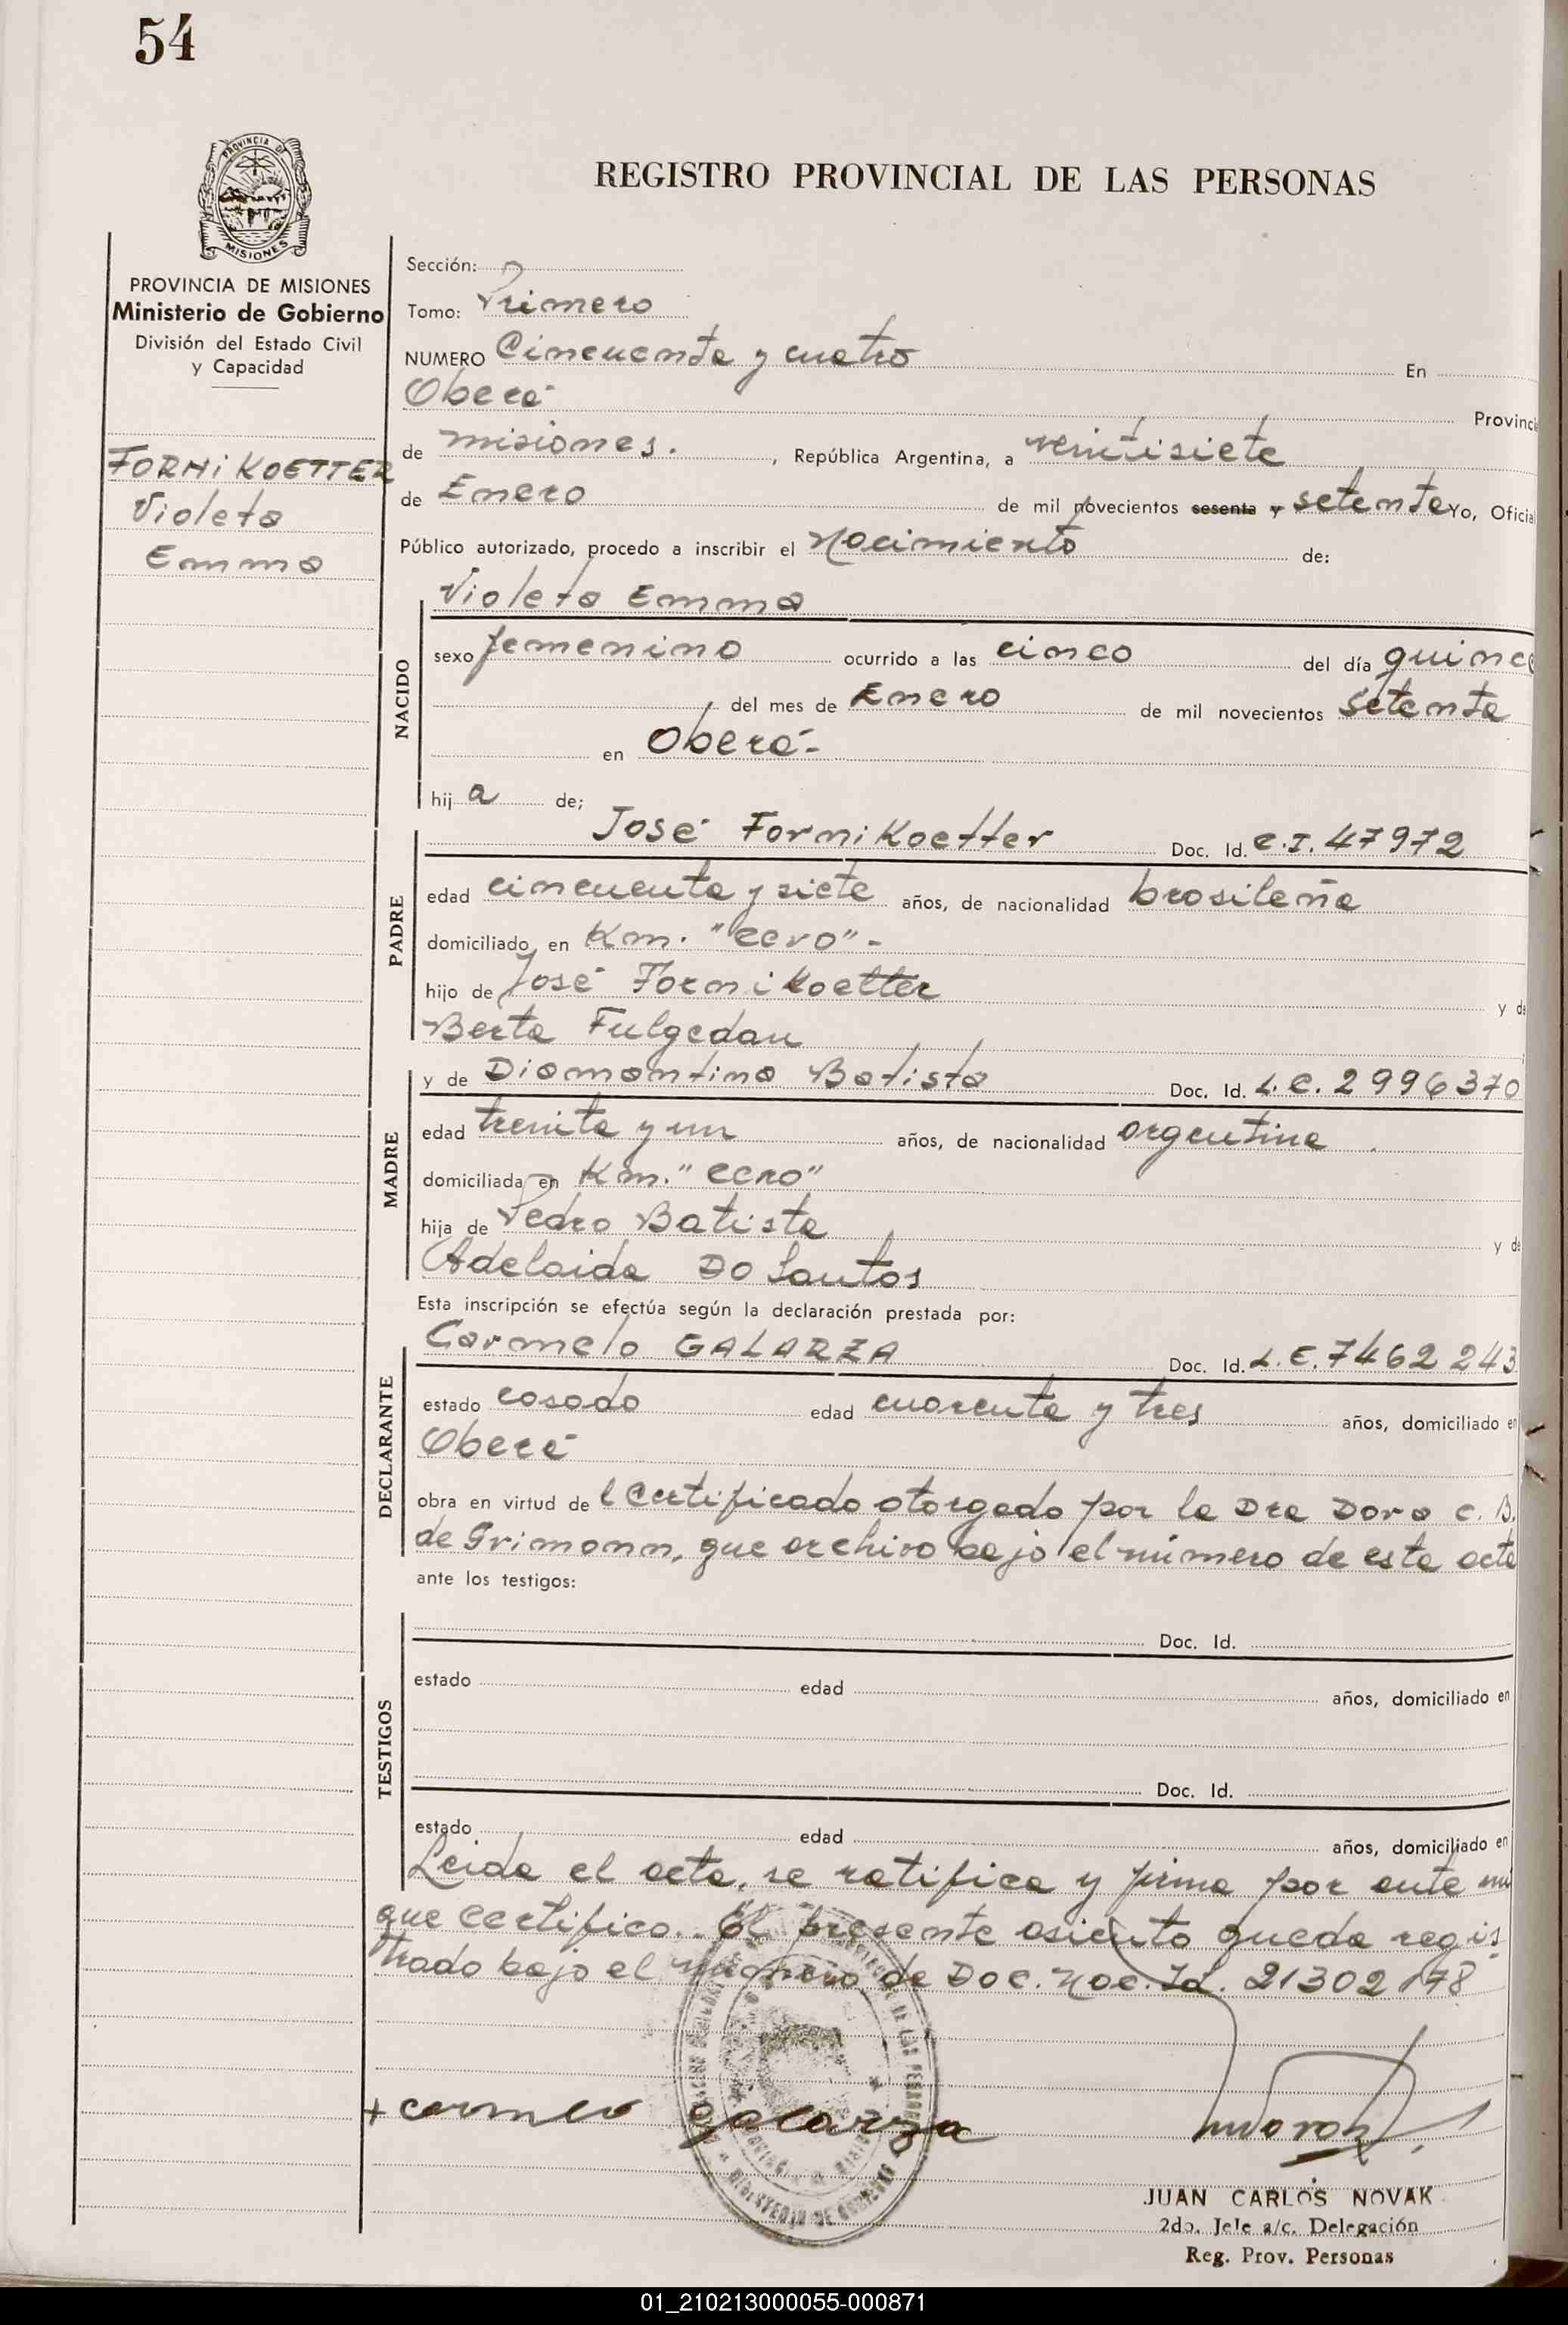 54
PROVINCIA DE
MISIONES
REGISTRO PROVINCIAL DE LAS PERSONAS
PROVINCIA DE MISIONES
Ministerio de Gobierno
División del Estado Civil
y Capacidad
FORNIKOETTER
Violeta
Emma
Sección:
Tomo: Primero
NUMERO Cincuenta y cuatro En
Oberá
Provinci
de misiones. , República Argentina, a veintisiete
de Enero de mil novecientos sesenta y setenta Yo, Oficia
Público autorizado, procedo a inscribir el Nacimiento de:
Violeta Emma
NACIDO
sexo femenino ocurrido a las cinco del día quince
del mes de Enero de mil novecientos setenta
en Oberá-
hij a de;
PADRE
José Fornikoetter Doc. Id. C.I. 47972
edad cincuenta y siete años, de nacionalidad brasileña
domiciliado en Km. "cero"-
hijo de José Fornikoetter y de
Berta Fulgedau
MADRE
y de Diamantina Batista Doc. Id. L.C. 2996370
edad treinta y un años, de nacionalidad argentina
domiciliada en Km. "cero"
hija de Pedro Batista y de
Adelaida Do Santos
Esta inscripción se efectúa según la declaración prestada por:
DECLARANTE
Carmelo GALARZA Doc. Id. L.E. 7462243
estado casado edad cuarenta y tres años, domiciliado en
Oberá
obra en virtud de l certificado otorgado por la Dra Dora C. B.
de Grimann, que archivo bajo el número de esta acta
ante los testigos:
TESTIGOS
Doc. Id.
estado edad años, domiciliado en
Doc. Id.
estado edad años, domiciliado en
Leida el acta, se ratifica y firma por ante mi
que certifico.. El presente asiento queda regis
trado bajo el número de Doc. Nac. Id. 21302178
+ carmelo galarza
JUAN CARLOS NOVAK
2do. Jefe a/c. Delegación
Reg. Prov. Personas
01_210213000055-000871